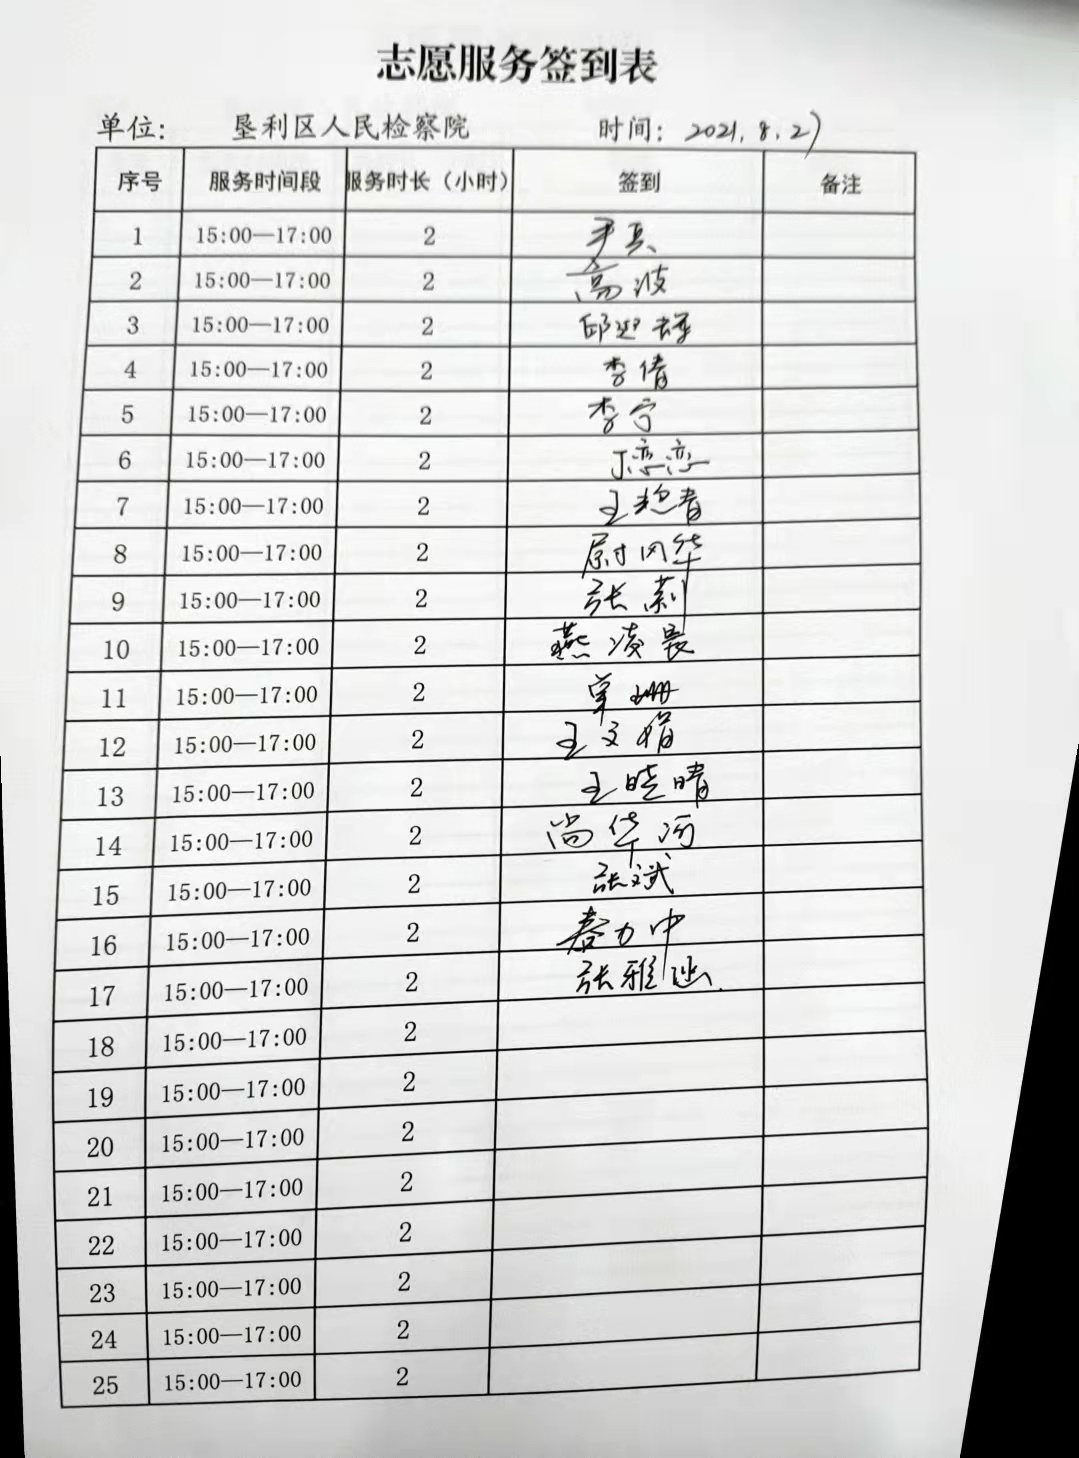 志愿服务签到表
单位： 垦利区人民检察院 时间： 2021.8.27
序号 服务时间段 服务时长（小时） 签到 备注
1 15:00—17:00 2 尹真
2 15:00—17:00 2 高波
3 15:00—17:00 2 邱迎
4 15:00—17:00 2 李倩
5 15:00—17:00 2 李宁
6 15:00—17:00 2 丁恋恋
7 15:00—17:00 2 王艳青
8 15:00—17:00 2 尉风华
9 15:00—17:00 2 张莉
10 15:00—17:00 2 燕凌晨
11 15:00—17:00 2 覃珊
12 15:00—17:00 2 王文娟
13 15:00—17:00 2 王晓晴
14 15:00—17:00 2 尚华河
15 15:00—17:00 2 张斌
16 15:00—17:00 2 秦力中
17 15:00—17:00 2 张雅逊
18 15:00—17:00 2
19 15:00—17:00 2
20 15:00—17:00 2
21 15:00—17:00 2
22 15:00—17:00 2
23 15:00—17:00 2
24 15:00—17:00 2
25 15:00—17:00 2